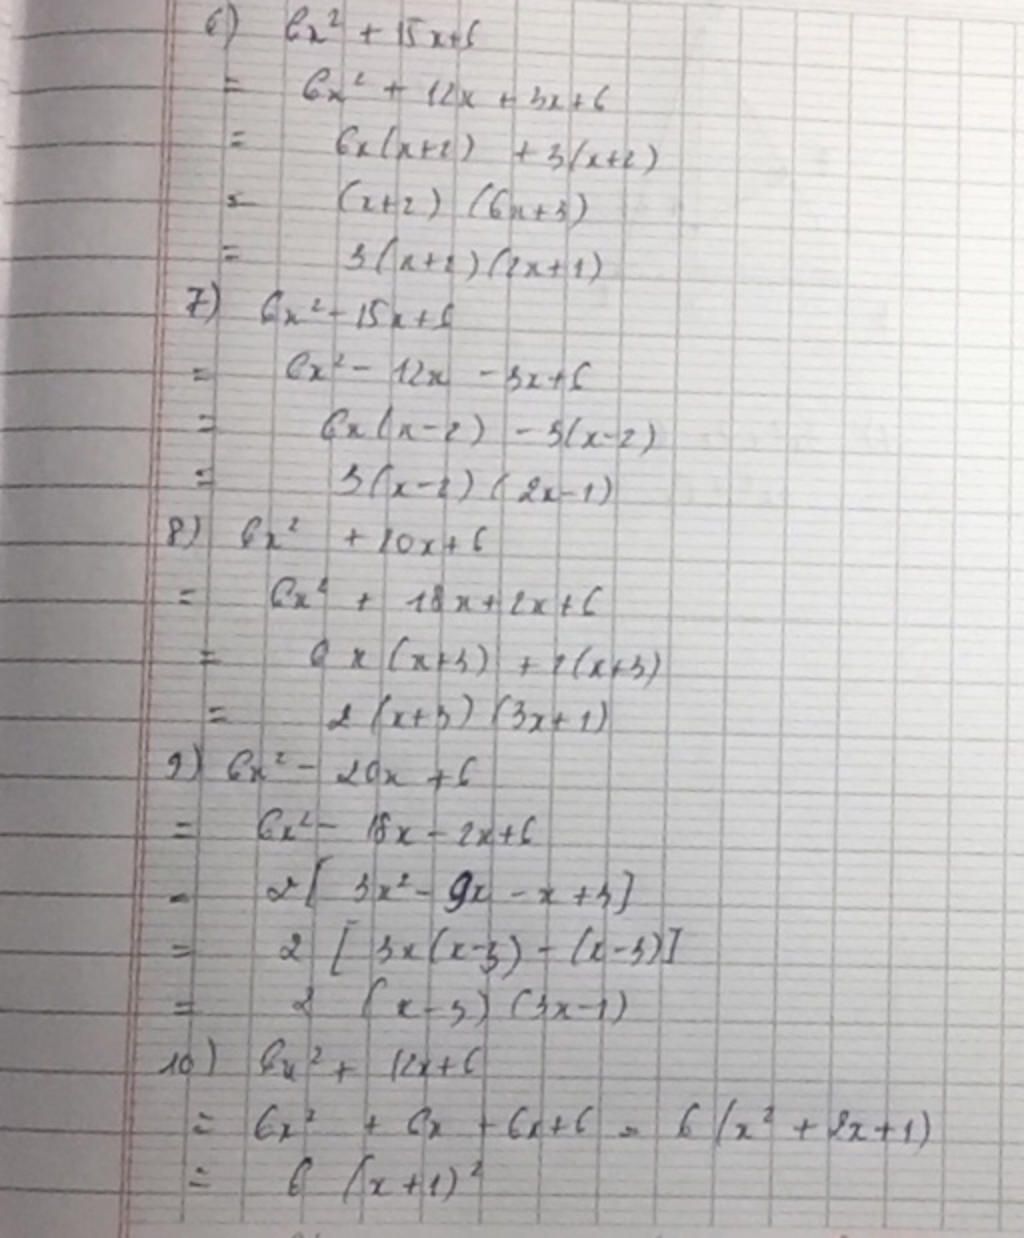 6) 6x² + 15x+6
= 6x² + 12x + 3x+6
= 6x(x+2) + 3(x+2)
= (x+2) (6x+3)
= 3(x+2)(2x+1)
7) 6x² - 15x+6
= 6x² - 12x - 3x+6
= 6x(x-2) - 3(x-2)
= 3(x-2) (2x-1)
8) 6x² + 20x+6
= 6x² + 18x+2x+6
= 6x (x+3) + 2(x+3)
= 2 (x+3) (3x+1)
9) 6x² - 20x +6
= 6x² - 18x - 2x+6
= 2[ 3x² - 9x - x +3]
= 2 [ 3x(x-3) - (x-3)]
= 2 (x-3) (3x-1)
10) 6x² + 12x+6
= 6x² + 6x + 6x+6 = 6 (x² + 2x+1)
= 6 (x+1)²